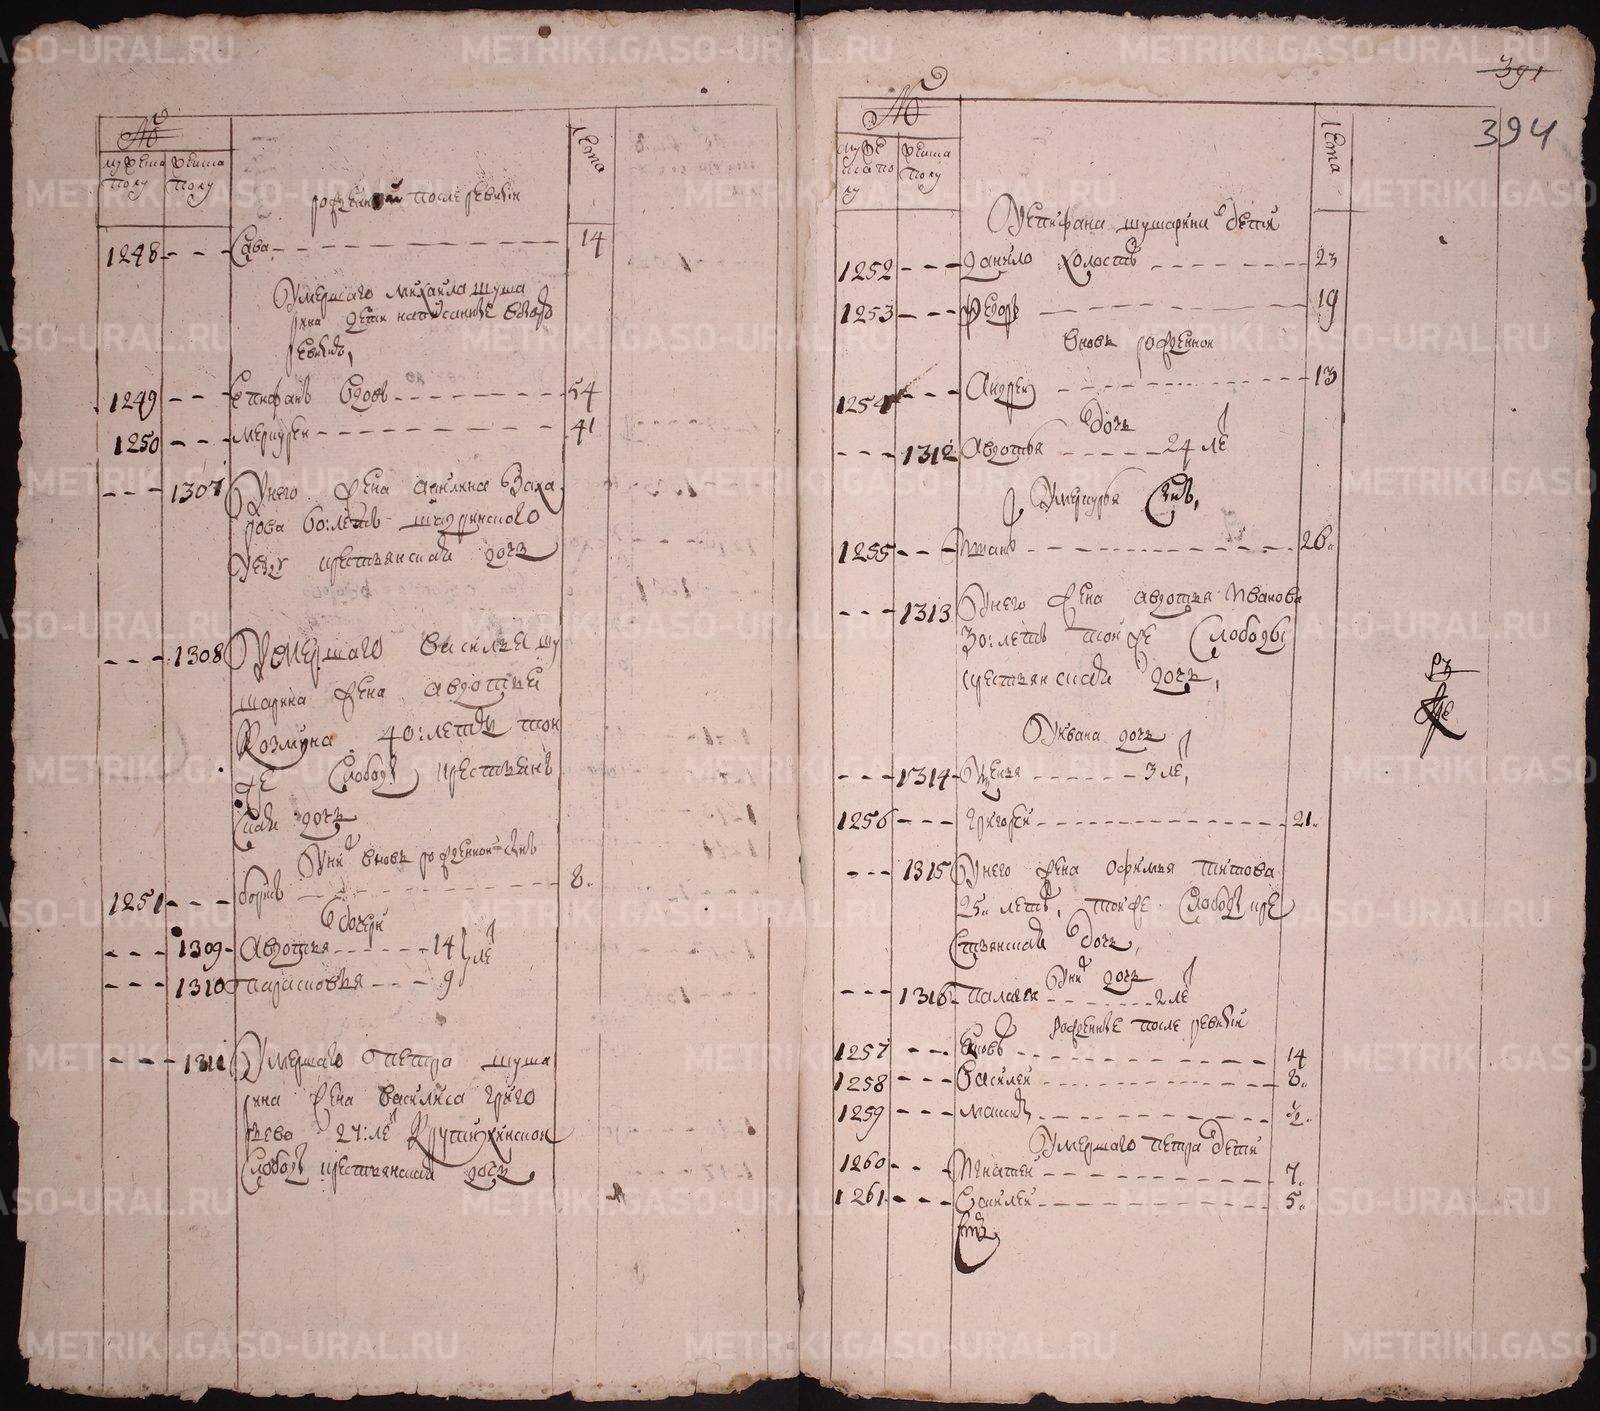 №
мужеска полу
женска полу
лета
рожденный после ревизии
1248 Сава 14
Умершаго михаила шуша
рина дети написанные втор
ревизiи,
1249 Епифанъ вдовъ 54
1250 меркурей 41
1307 Унего жена акилина Заха
рова 60: летъ шадринского
уезду крестьянская дочь
1308 Умершаго василья шу
шарина жена авдотья
Козмина 40: летъ той
же Слободы крестьянъ
ская дочь
Уних вновь рожденной сынъ
1251 борисъ 8
дочери
1309 Авдотья 14 ле
1310 парасковья 9
1311 Умершаго петра шуша
рина жена василиса григо
рьева 27: ле Крутихинской
Слободы крестьянская дочь
391
394
№
мужеска полу
женска полу
лета
Уепифана шушарина дети
1252 данило холостъ 23
1253 федоръ 19
вновь рожденной
1254 Андрей 13
дочь
1312 Авдотья 24 ле
Умеркурья Сынъ,
1255 Иванъ 26
1313 Унего жена авдотья Иванова
30: летъ той же Слободы
крестьянская дочь,
Уивана дочь
1314 3 ле,
1256 григорей 21
1315 Унего жена офимья титова
25 летъ, тойже Слободы кре
стьянская дочь,
Уних дочь
1316 палагея 2 ле
рожденные после ревизии
1257 14
1258 Василей 8
1259
Умершаго петра дети
1260 Игнатей 7
1261 5